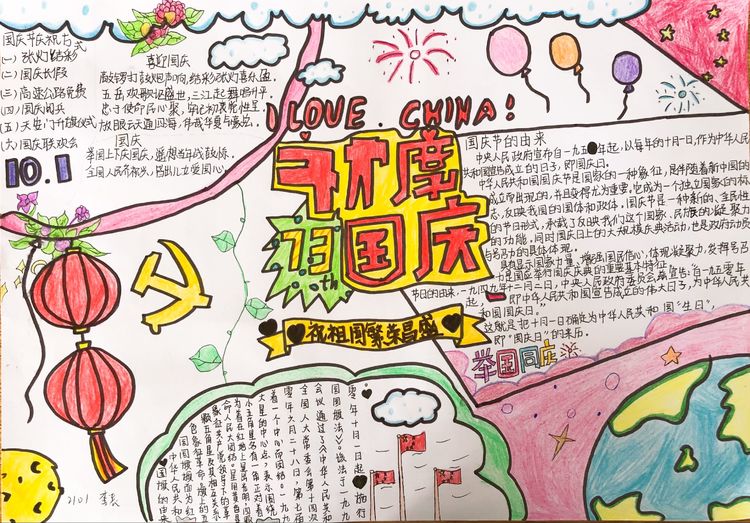 国庆节庆祝方式
(一)张灯结彩
(二)国庆长假
(三)高速公路免费
(四)国庆阅兵
(五)天安门升旗仪式
(六)国庆联欢会
10.1
喜迎国庆
敲锣打鼓炮声响,结彩张灯喜乐盈
五岳欢歌 盛世,三江起舞唱升平
国庆
举国上下庆国庆,遥想当年战鼓
全国人民
I LOVE CHINA!
欢度
73th国庆
祝祖国繁荣昌盛
国庆节的由来
中央人民政府宣布自一九五0年起,以每年的十月一日,作为中华人民
共和国宣告成立的日子,即国庆日。
中华人民共和国国庆节是国家的一种象征,是伴随着新中国的
成立而出现的,并且变得尤为重要,它成为一个独立国家的标
志,反映我国的国体和政体,国庆节是一种新的、全民性
的节日形式,承载了反映我们这个国家、民族的凝聚力
的功能,同时国庆日上的大规模庆典活动,也是政府动员
与号召力的具体体现。
具有显示国家力量、增强国民信心,体现凝聚力,发挥号召
力是国庆举行国庆庆典的重要基本特征。
节日的由来,一九四九年十二月二日,中央人民政府委员会 宣告:自一九五零年
起, 即中华人民共和国宣告成立的伟大日子,为中华人民共
和国国庆日。"
这就是把十月一日确定为中华人民共和国"生日",
即"国庆日"的来历。
举国同庆
国旗的由来
中华人民共和
国国旗旗面为红
色象征革命,旗上的五
颗五角星及其相互关系
象征共产党领导下的革
命人民大团结。星用黄色是
为着在红地上显出光明,四颗
小五角星各有一角正对着
大星的中心点,表示围绕
着一个中心而团结。一九九
零年六月二十八日,第七届
全国人大常委会第十四次
会议通过了《中华人民共和
国国旗法》。该法于一九九
零年十月一日起施行
2101 李